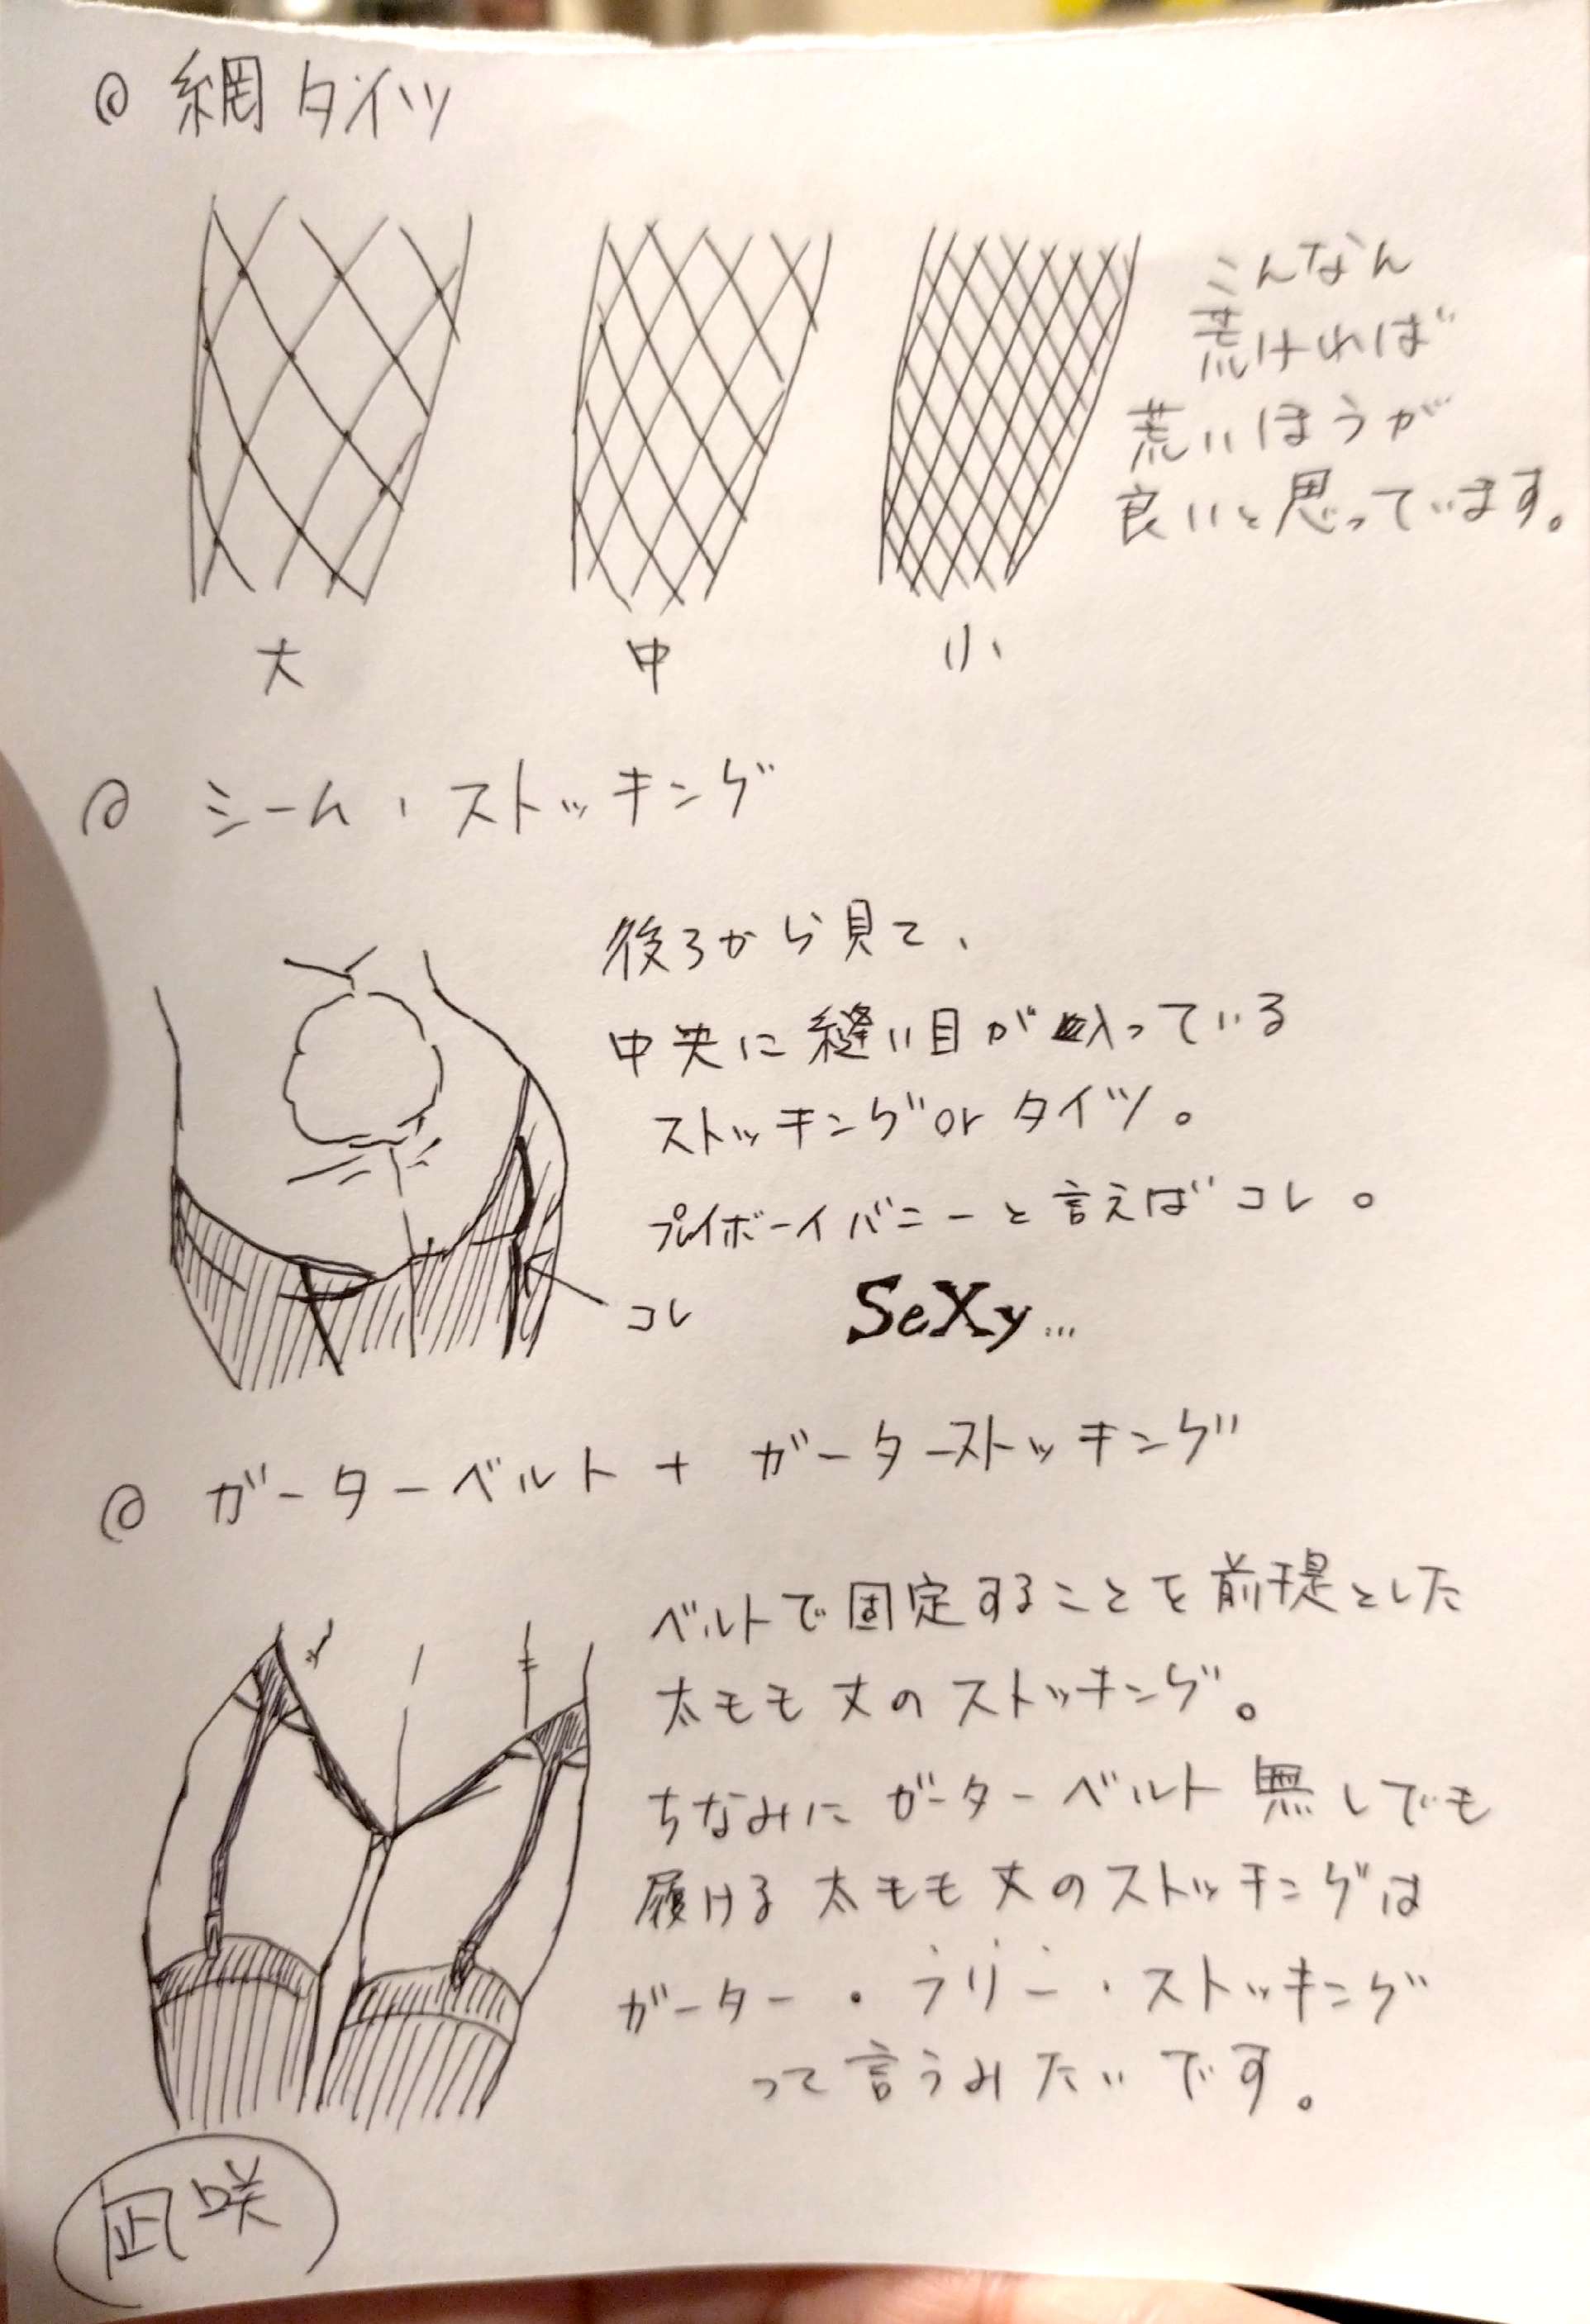 網タイツ
こんなん
荒ければ
荒いほうが
良いと思っています。
大 中 小
シーム・ストッキング
後ろから見て、
中央に縫い目が入っている
ストッキングor タイツ。
プレイボーイバニーと言えばコレ。
コレ
SeXy...
ガーターベルト + ガーターストッキング
ベルトで固定することを前提とした
太モモ丈のストッキング。
ちなみにガーターベルト無しでも
履ける太モモ丈のストッキングは
ガーター・フリー・ストッキング
って言うみたいです。
凪咲